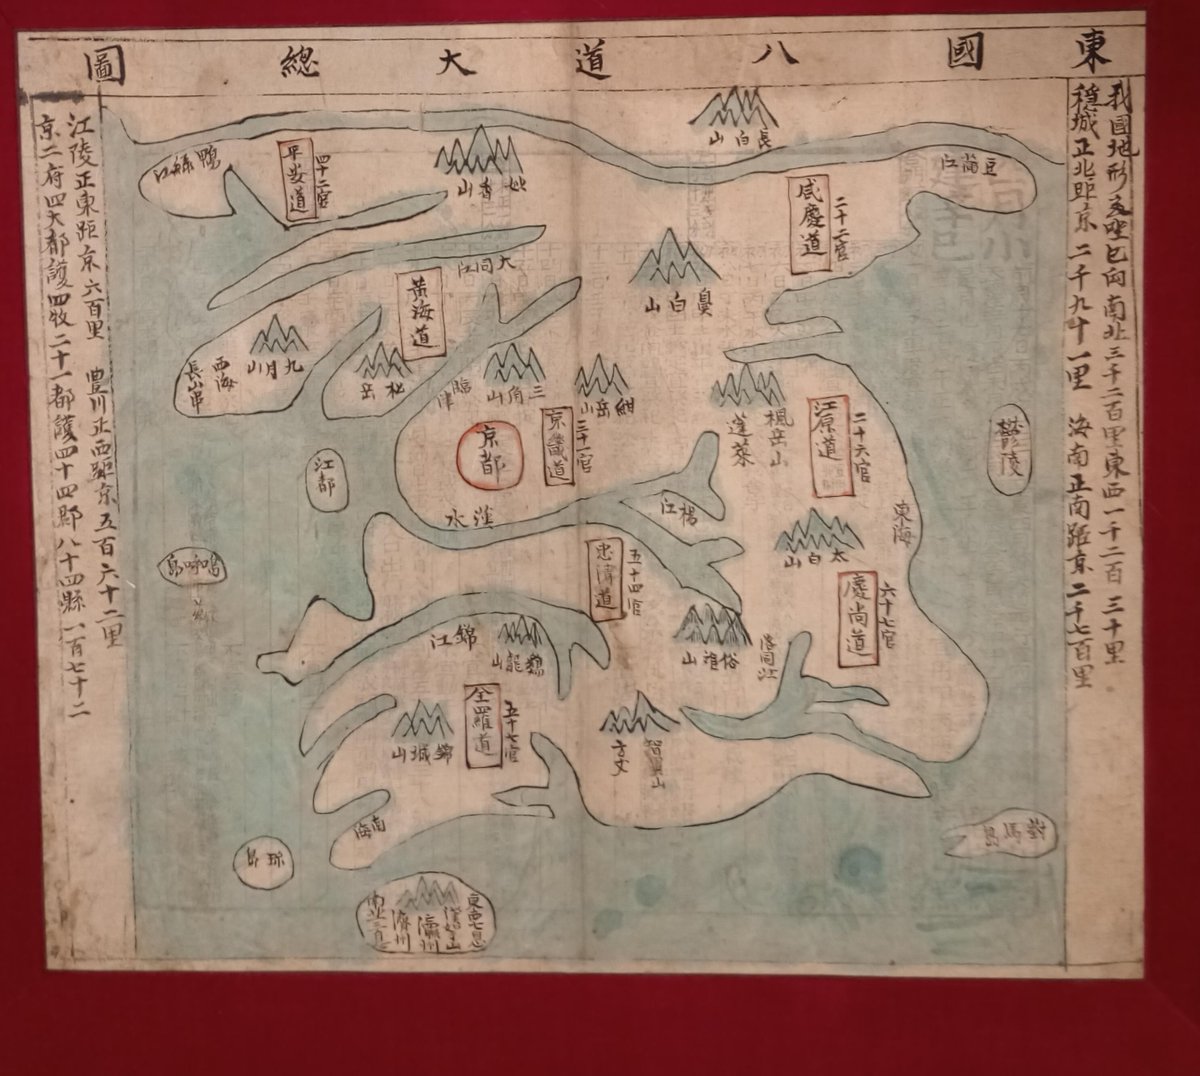 東國八道大總圖
我國地形
南北三千二百里東西一千二百三十里
穩城正北距京二千九十一里 海南正南距京二千七百里
江陵正東距京六百里 豊川正西距京五百六十二里
京二府四大都護四牧二十一都護四十四郡八十四縣一百七十二
長白山
豆滿江
咸慶道
二十二官
妙香山
平安道
四十二官
鴨綠江
鼻白山
大同江
黃海道
九月山
西海
長山串
三角山
臨津
紺岳山
京畿道
三十一官
京都
江都
漢水
楓岳山
蓬萊
江原道
二十六官
鬱陵
東海
楊江
太白山
慶尚道
六十七官
忠淸道
五十四官
俗離山
洛同江
錦江
鷄龍山
全羅道
五十七官
錦城山
智異山
方丈
南海
珎島
對馬島
濟州
瀛州